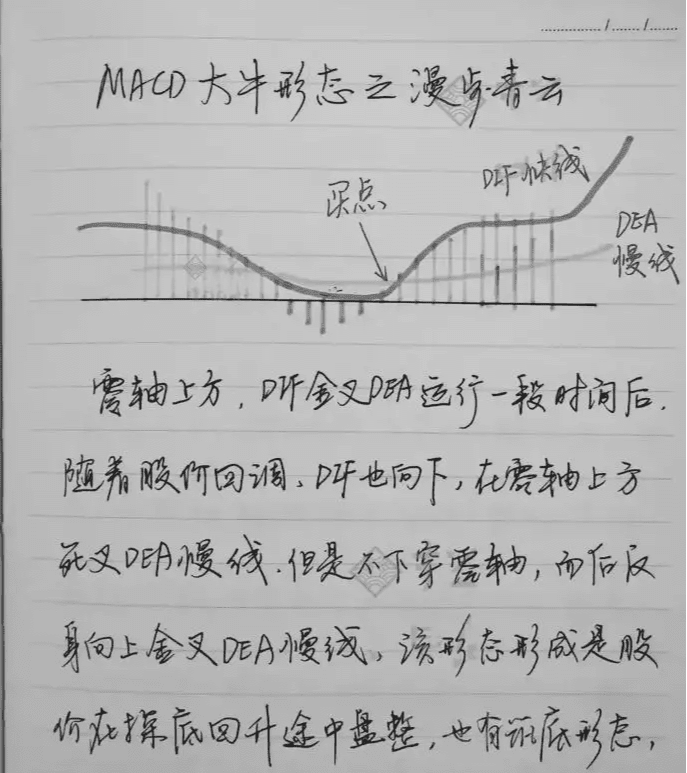 MACD大牛形态之漫步青云
买点
DIF快线
DEA
慢线
零轴上方,DIF金叉DEA运行一段时间后.
随着股价回调、DIF也向下,在零轴上方
死叉DEA慢线.但是不下穿零轴,而后反
身向上金叉DEA慢线、该形态形成是股
价在探底回升途中盘整,也有筑底形态,